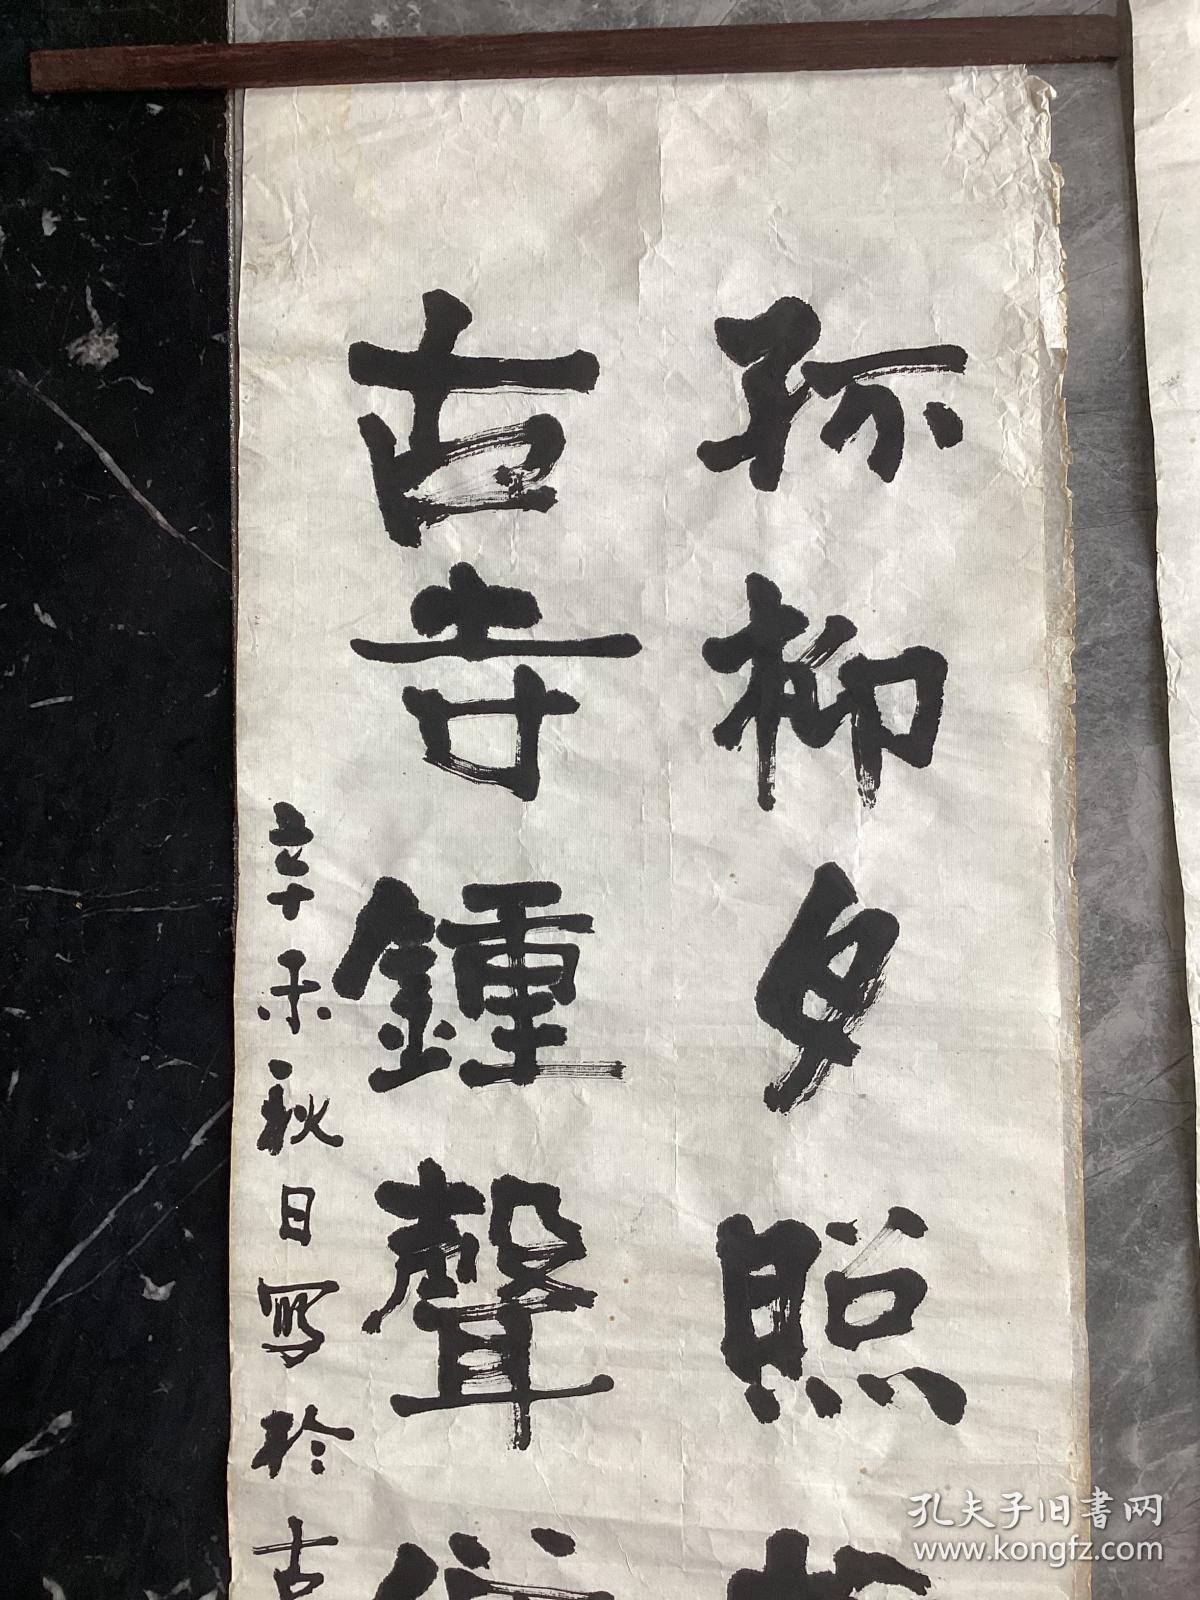 孤柳夕照
古寺鍾聲
辛未秋日寫於古
孔夫子旧書网
www.kongfz.com